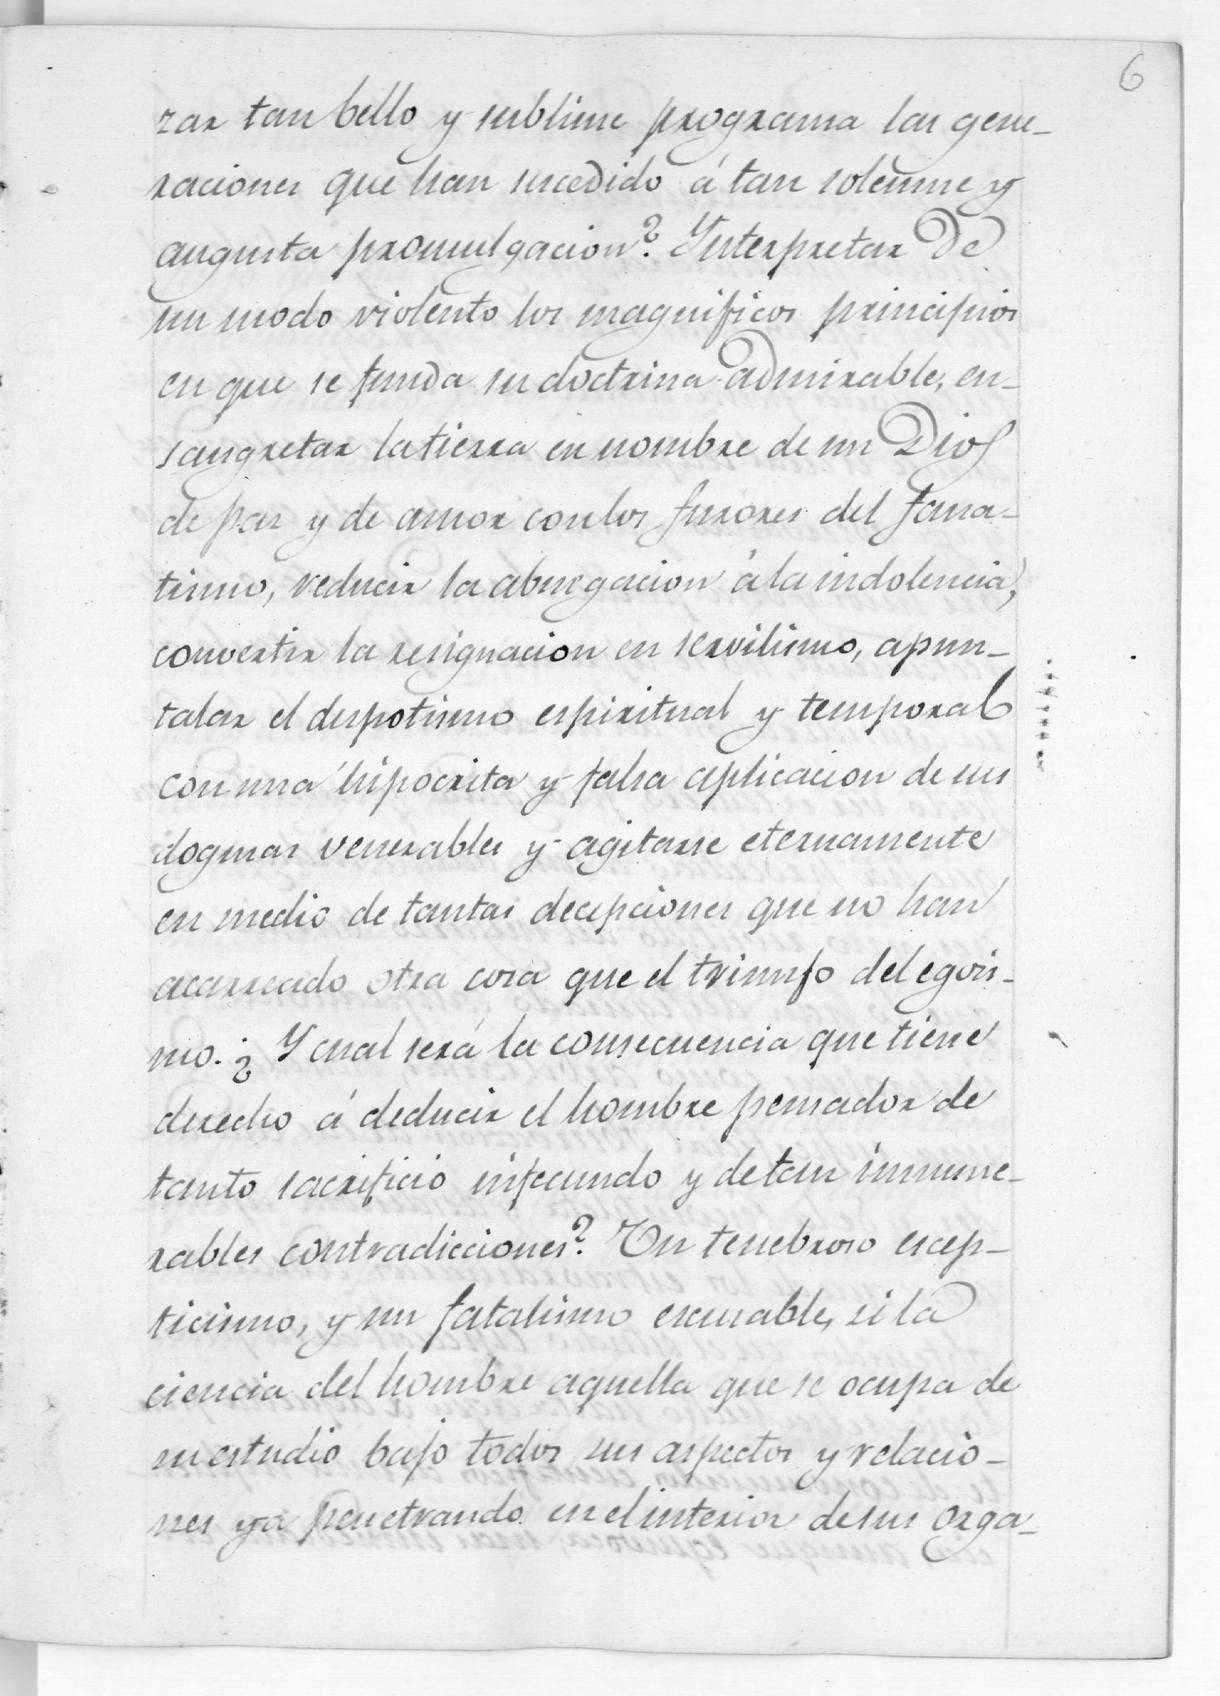 6
zar tan bello y sublime programa las gene-
raciones que han sucedido á tan solemne y
augusta promulgacion? Ynterpretar de
un modo violento los magnificos principios
en que se funda su doctrina admirable, en-
sangretar la tierra en nombre de un Dios
de paz y de amor con los furores del fana-
tismo, reducir la abnegacion á la indolencia,
convertir la resignacion en servilismo, apun-
talar el despotismo espiritual y temporal
con una hipocrita y falsa aplicacion de sus
dogmas venerables y agitarse eternamente
en medio de tantas decepciones que no han
acarreado otra cosa que el triunfo del egois-
mo. ¿Y cual será la consecuencia que tiene
derecho á deducir el hombre pensador de
tanto sacrificio infecundo y de tan innume-
rables contradicciones? Un tenebroso escep-
ticismo, y un fatalismo escusable, si la
ciencia del hombre aquella que se ocupa de
su estudio bajo todos sus aspectos y relacio-
nes ya penetrando en el interior de sus orga-